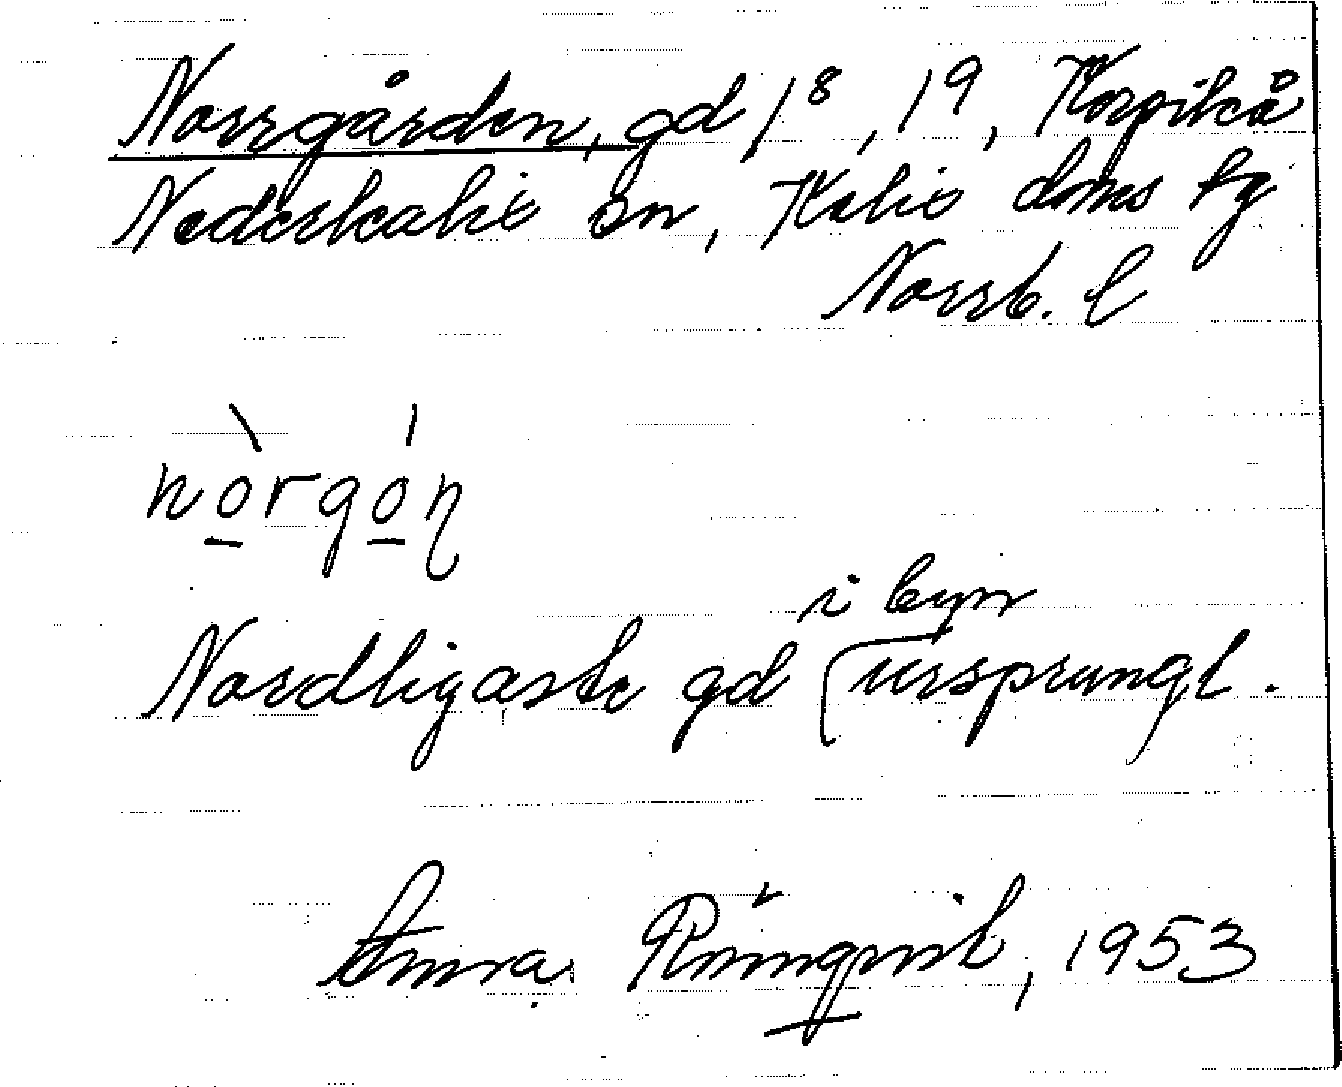 Norrgården, gd 1⁸, 19, Korpikå
Nederkalix sn, Kalix doms tg
Norrb. l
nòrgón
Nordligaste gd i byn ursprungl.
Anna Rönnqvist, 1953